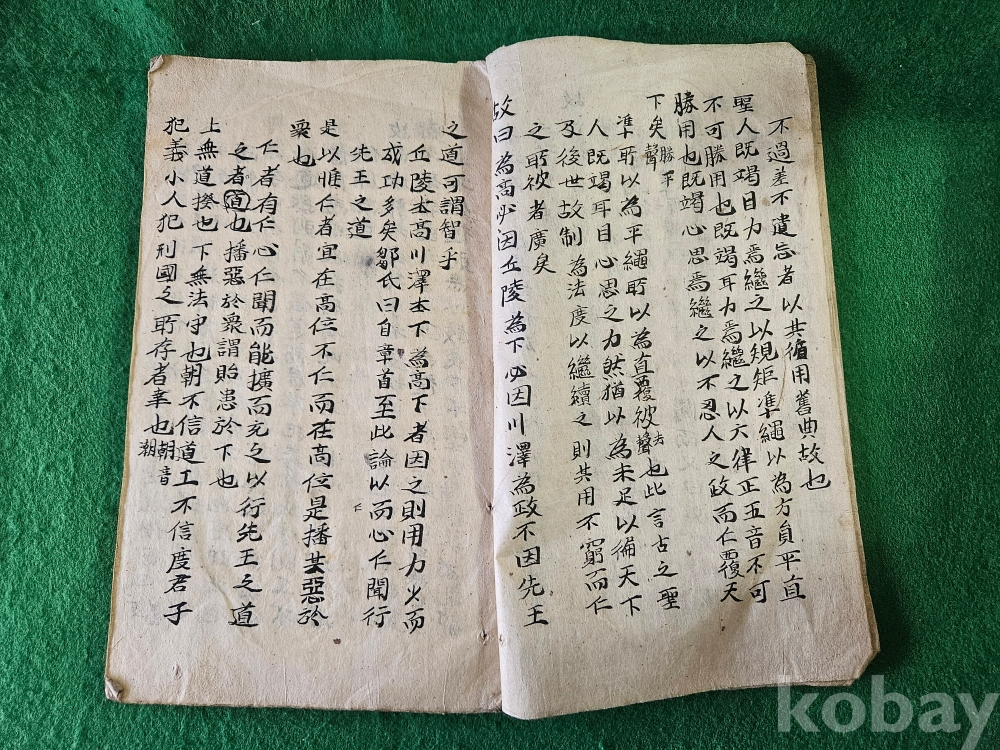 不過差不遺忘者以其循用舊典故也
聖人既竭目力焉繼之以規矩準繩以為方員平直
不可勝用也既竭耳力焉繼之以六律正五音不可
勝用也既竭心思焉繼之以不忍人之政而仁覆天
下矣勝平聲
準所以為平繩所以為直覆被也去聲此言古之聖
人既竭耳目心思之力然猶以為未足以徧天下
及後世故制為法度以繼續之則其用不窮而仁
之所被者廣矣
故曰為高必因丘陵為下必因川澤為政不因先王
之道可謂智乎
丘陵本高川澤本下為高下者因之則用力少而
成功多矣鄒氏曰自章首至此論以而心仁聞行
仁
先王之道
是以惟仁者宜在高位不仁而在高位是播其惡於
衆也
仁者有仁心仁聞而能擴而充之以行先王之道
之者道也播惡於衆謂貽患於下也
上無道揆也下無法守也朝不信道工不信度君子
犯義小人犯刑國之所存者幸也朝音潮
kobay